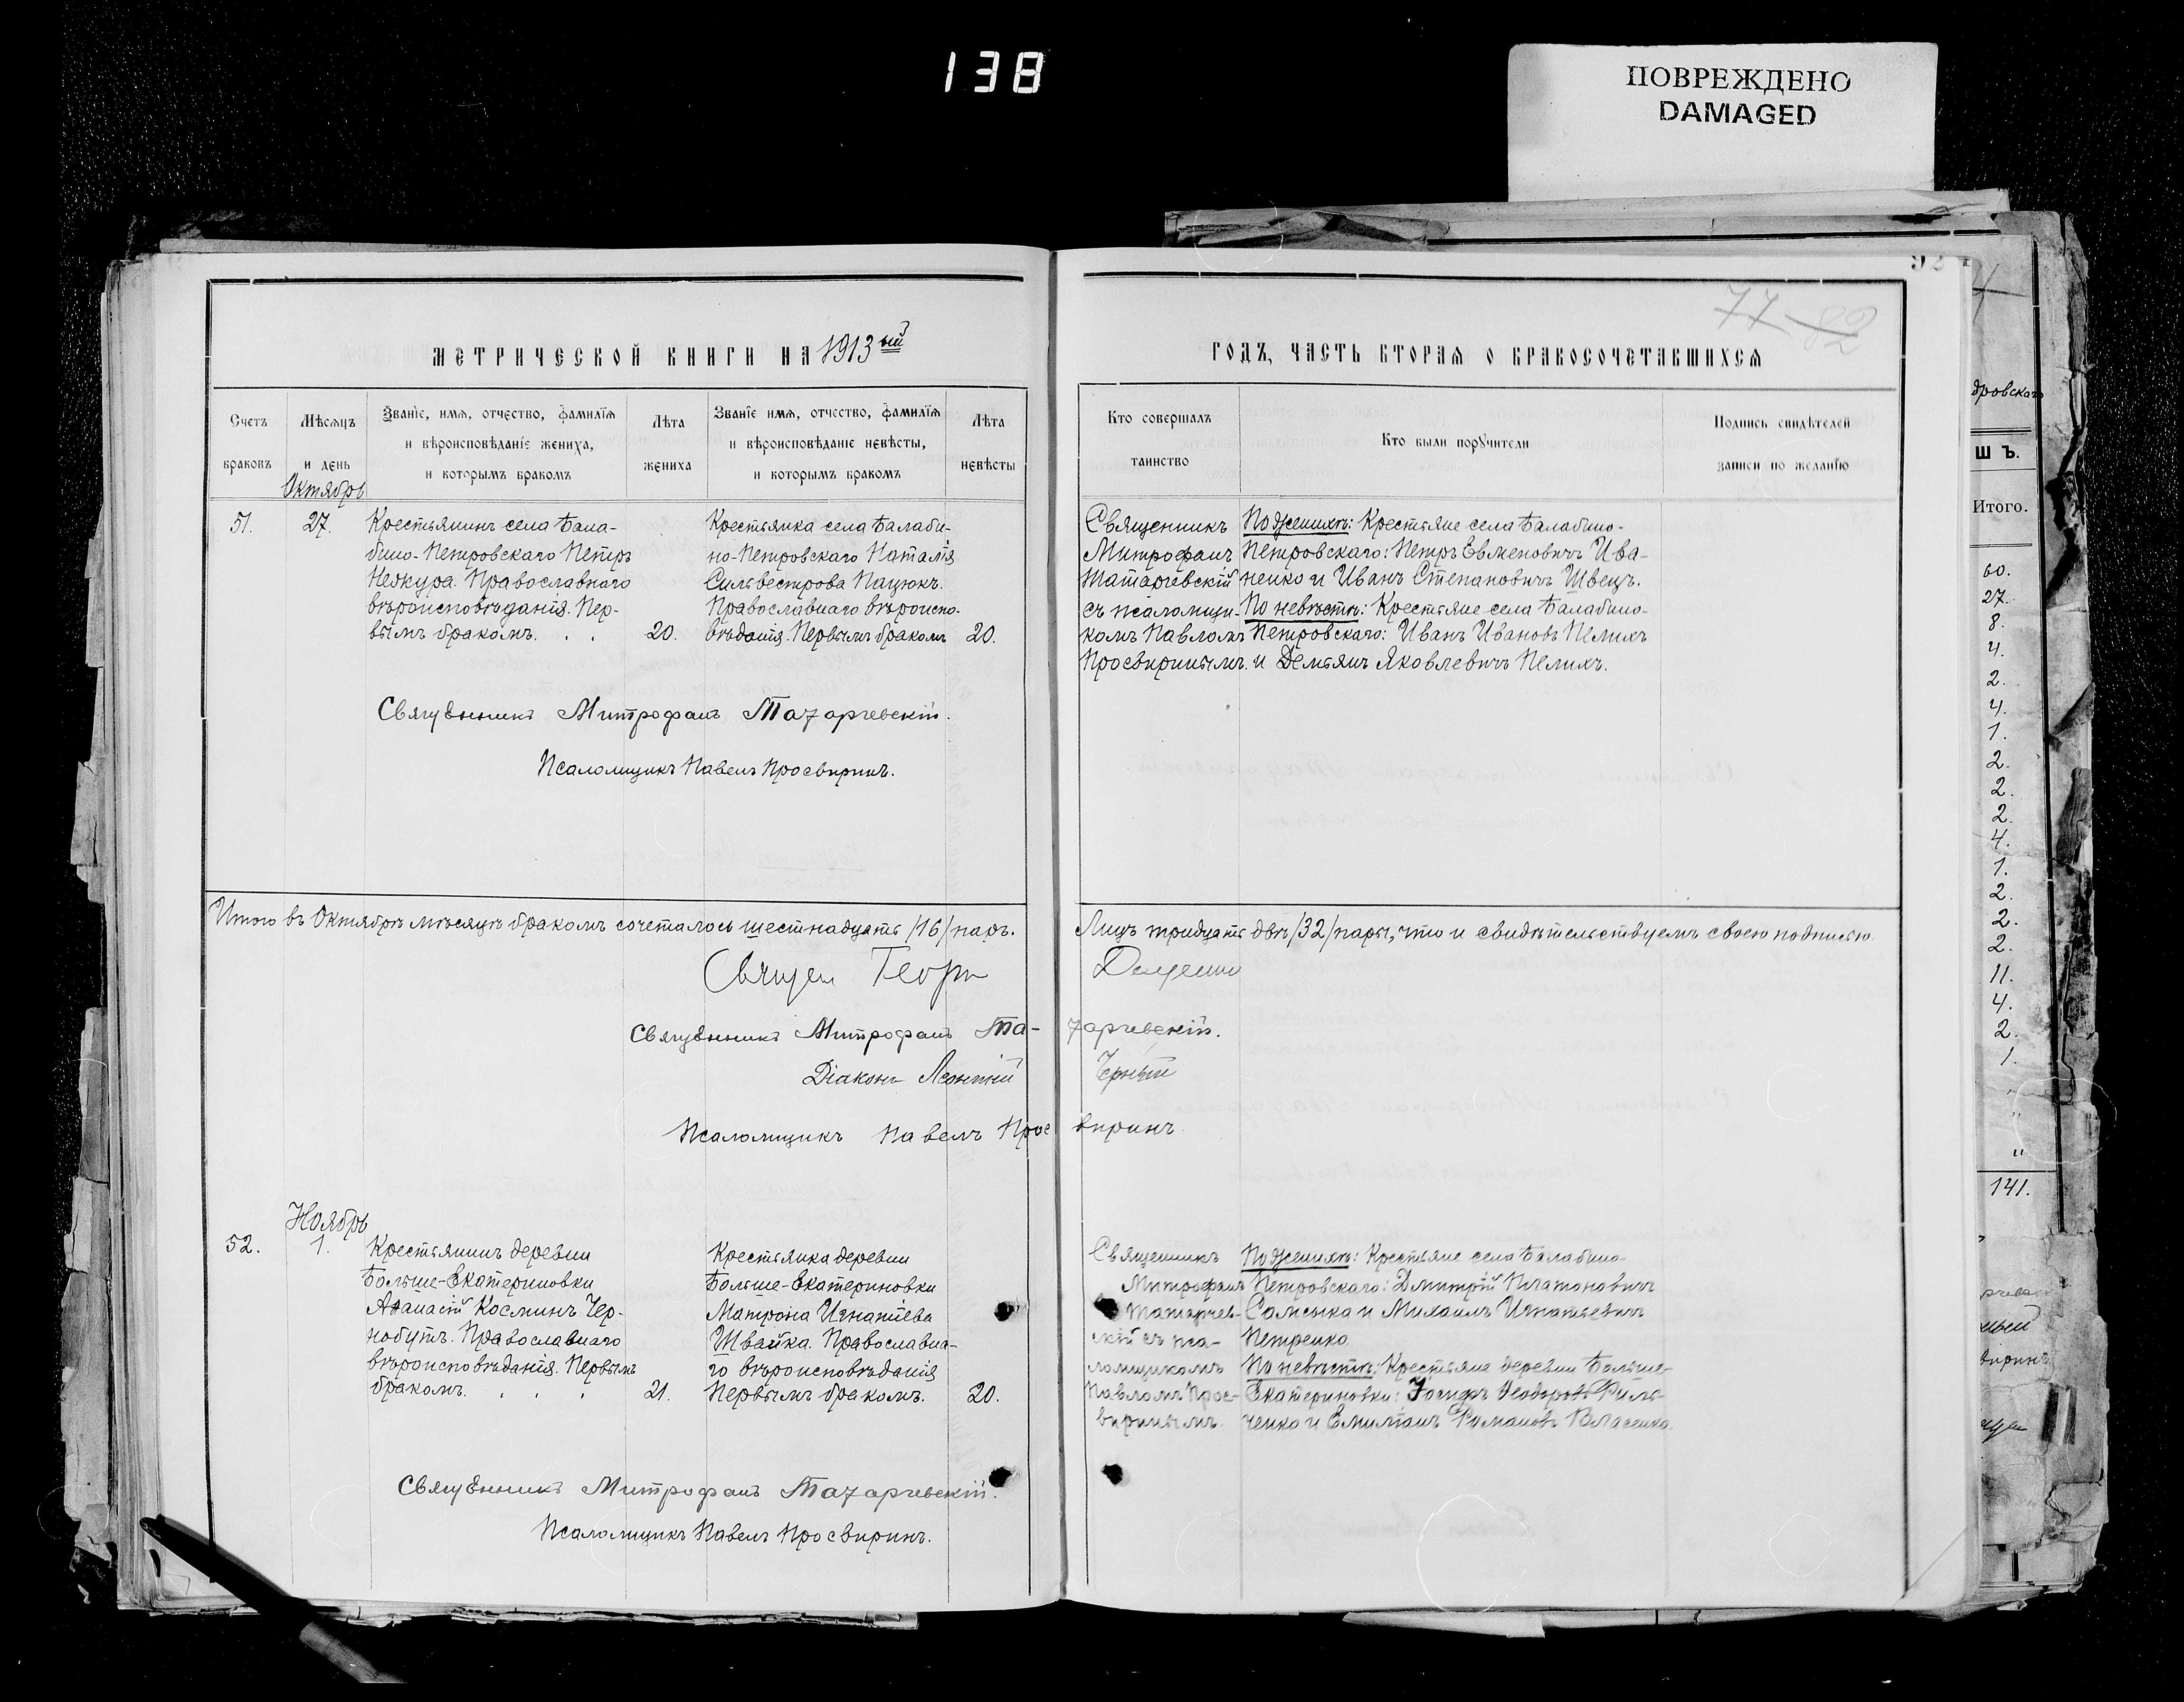 138
ПОВРЕЖДЕНО
DAMAGED
77 82
МЕТРИЧЕСКОЙ КНИГИ НА 1913ый
ГОДЪ, ЧАСТЬ ВТОРАЯ О БРАКОСОЧЕТАВШИХСЯ
Счетъ
браковъ
Мѣсяцъ
и день
Званіе, имя, отчество, фамилія
и вѣроисповѣданіе жениха,
и которымъ бракомъ
Лѣта
жениха
Званіе имя, отчество, фамилія
и вѣроисповѣданіе невѣсты,
и которымъ бракомъ
Лѣта
невѣсты
Кто совершалъ
таинство
Кто были поручители
Подпись свидѣтелей
записи по желанію
Октябрь
51.
27.
Крестьянинъ села Бала-
бино-Петровскаго Петръ
Православнаго
вѣроисповѣданія. Пер-
вымъ бракомъ. . .
20.
Крестьянка села Балаби-
но-Петровскаго Наталія
Сильвестрова Пацюкъ.
Православнаго вѣроиспо-
вѣданія. Первымъ бракомъ
20.
Священникъ
Митрофанъ
Татарчевскій
съ псаломщи-
комъ Павломъ
Просвиринымъ.
По женихѣ: Крестьяне села Балабино-
Петровскаго: Петръ Евменовичъ Ива-
ненко и Иванъ Степановичъ Швецъ.
По невѣстѣ: Крестьяне села Балабино-
Петровскаго: Иванъ Ивановъ Пелихъ
и Демьянъ Яковлевичъ Пелихъ.
Священникъ Митрофанъ Татарчевскій.
Псаломщикъ Павелъ Просвиринъ.
Итого въ Октябрѣ мѣсяцѣ бракомъ сочеталось шестнадцать /16/ паръ.
Лицъ тридцать двѣ /32/ пары, что и свидѣтельствуемъ своею подписью.
Священ Георг
Священникъ Митрофанъ Та-тарчевскій.
Діаконъ Леонтій Черный
Псаломщикъ Павелъ Просвиринъ
Ноябрь
52.
1.
Крестьянинъ деревни
Больше-Екатериновки
Аѳанасій Косминъ Чер-
нобутъ. Православнаго
вѣроисповѣданія. Первымъ
бракомъ. . . .
21.
Крестьянка деревни
Больше-Екатериновки
Матрона Игнатіева
Швайка. Православна-
го вѣроисповѣданія
Первымъ бракомъ.
20.
Священникъ
Митрофанъ
Татарчев-
скій съ пса-
ломщикомъ
Павломъ Прос-
виринымъ.
По женихѣ: Крестьяне села Балабино-
Петровскаго: Дмитрій Платоновичъ
Самсыка и Михаилъ Игнатьевичъ
Петренко
По невѣстѣ: Крестьяне деревни Больше-
Екатериновки: Іосифъ Ѳеодоровъ Филь-
ченко и Емиліанъ Романовъ Власенко.
Священникъ Митрофанъ Татарчевскій.
Псаломщикъ Павелъ Просвиринъ.
дровскаго
Ш Ъ.
Итого.
60.
27.
8.
4.
2.
4.
1.
2.
2.
2.
4.
1.
2.
2.
2.
11.
4.
2.
1.
"
"
"
141.